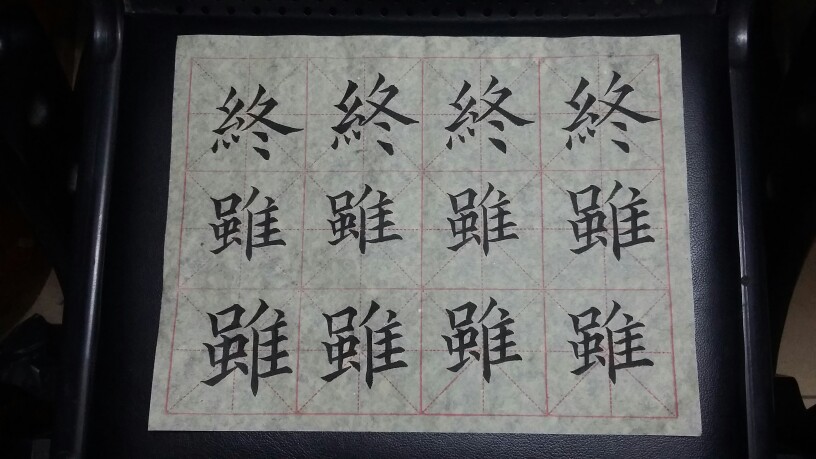 終終終終
雖雖雖雖
雖雖雖雖